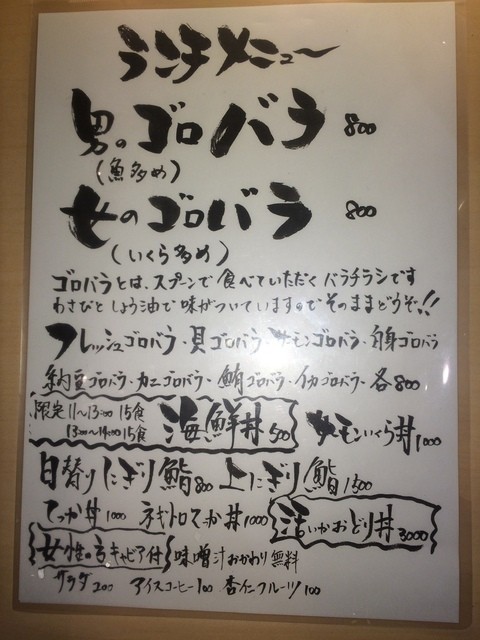 ランチメニュー
男のゴロバラ 800
(魚多め)
女のゴロバラ 800
(いくら多め)
ゴロバラとは、スプーンで食べていただくバラチラシです
わさびとしょう油で味がついていますのでそのままどうぞ!!
フレッシュゴロバラ・貝ゴロバラ・サーモンゴロバラ・白身ゴロバラ
納豆ゴロバラ・カニゴロバラ・鮪ゴロバラ・イカゴロバラ・各800
限定11〜13:00 15食
13:00〜14:00 15食
海鮮丼 500 サーモンいくら丼 1000
日替りにぎり鮨 800 上にぎり鮨 1500
てっか丼 1000 ネギトロてっか丼 1000 活いかおどり丼 3000
女性の方キャビア付 味噌汁おかわり無料
サラダ 200 アイスコーヒー 100 杏仁フルーツ 100